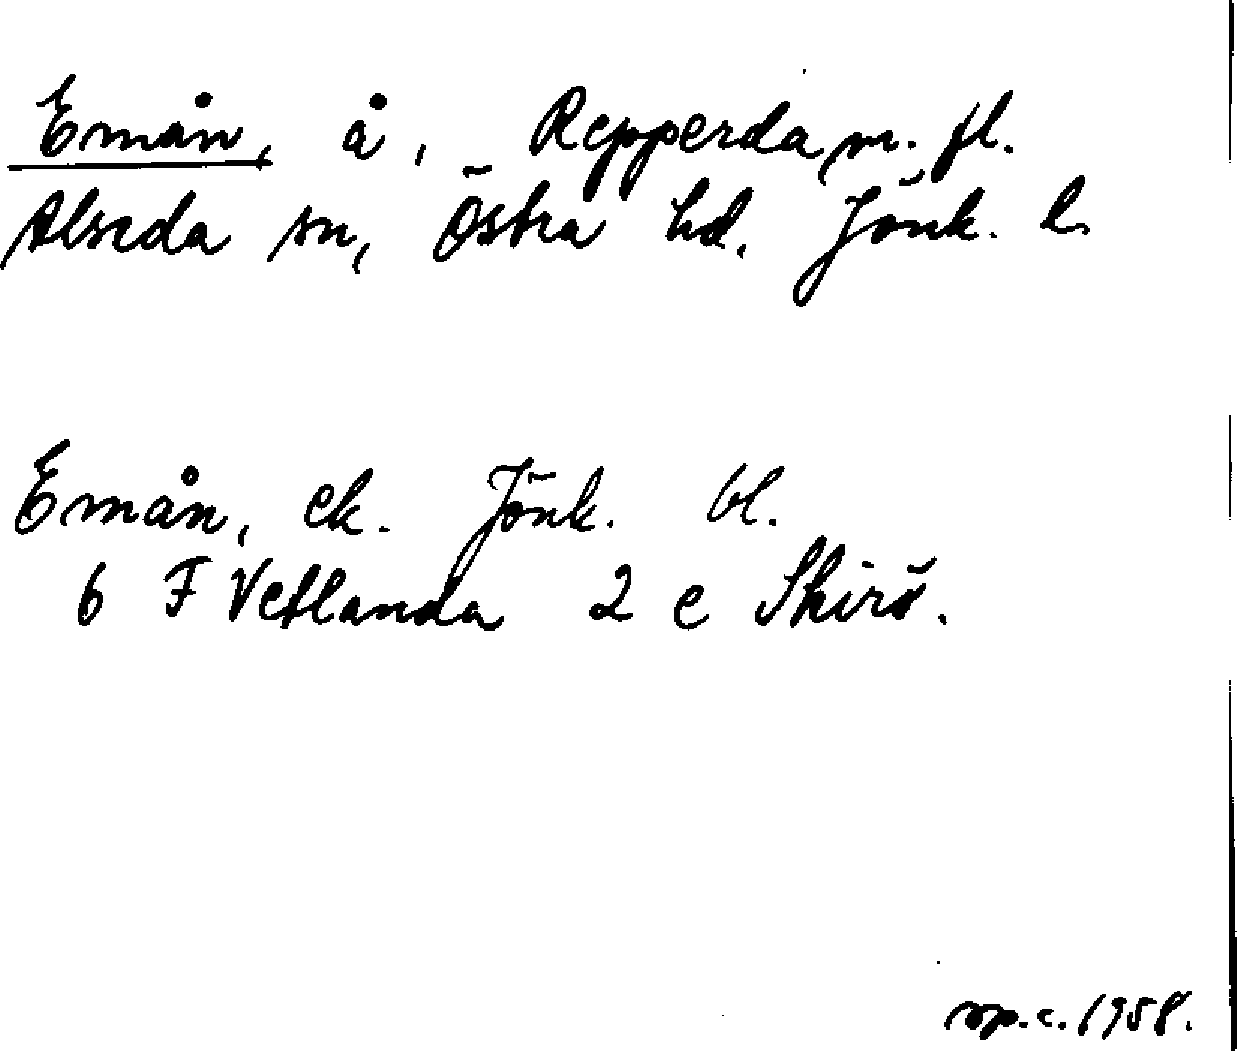 Emån, å, Repperda m. fl.
Alseda sn, Östra hd. Jönk. l.
Emån, ek. Jönk. bl.
6 F Vetlanda 2 e Skirö.
op.c. 1958.